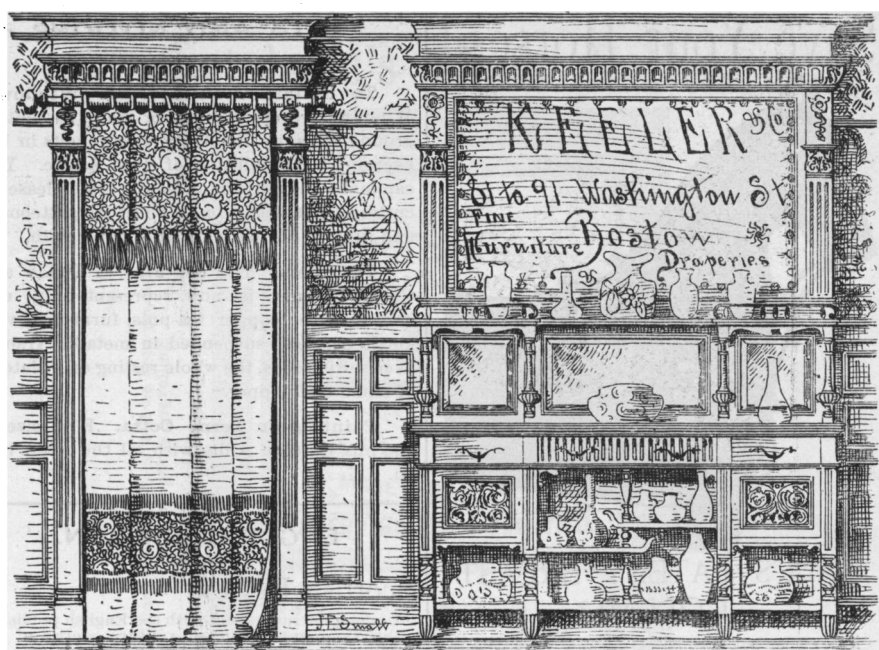 KEELER & Co
81 to 91 Washington St
FINE
Furniture Boston
Draperies
Small